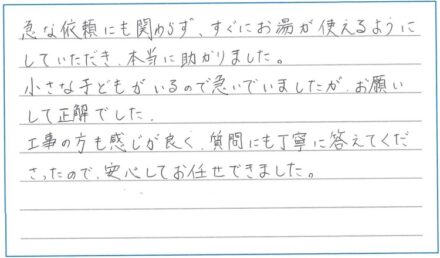 急な依頼にも関わらず、すぐにお湯が使えるように
していただき、本当に助かりました。
小さな子どもがいるので急いでいましたが、お願い
して正解でした.
工事の方も感じが良く、質問にも丁寧に答えてくだ
さったので、安心してお任せできました。